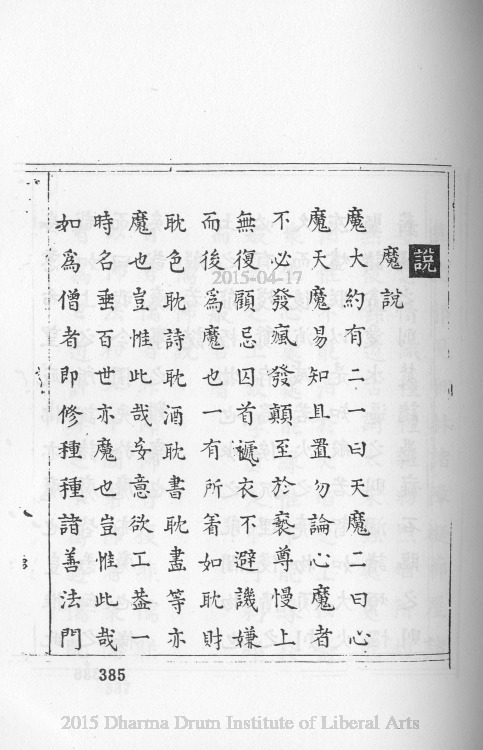 說
魔說
魔大約有二一曰天魔二曰心
魔天魔易知且置勿論心魔者
不必發瘋發顛至於褻尊慢上
無復顧忌囚首褫衣不避譏嫌
而後為魔也一有所著如耽財
耽色耽詩耽酒耽書耽畫等亦
魔也豈惟此哉妄意欲工葢一
時名垂百世亦魔也豈惟此哉
如為僧者即修種種諸善法門
385
2015-04-17
2015 Dharma Drum Institute of Liberal Arts